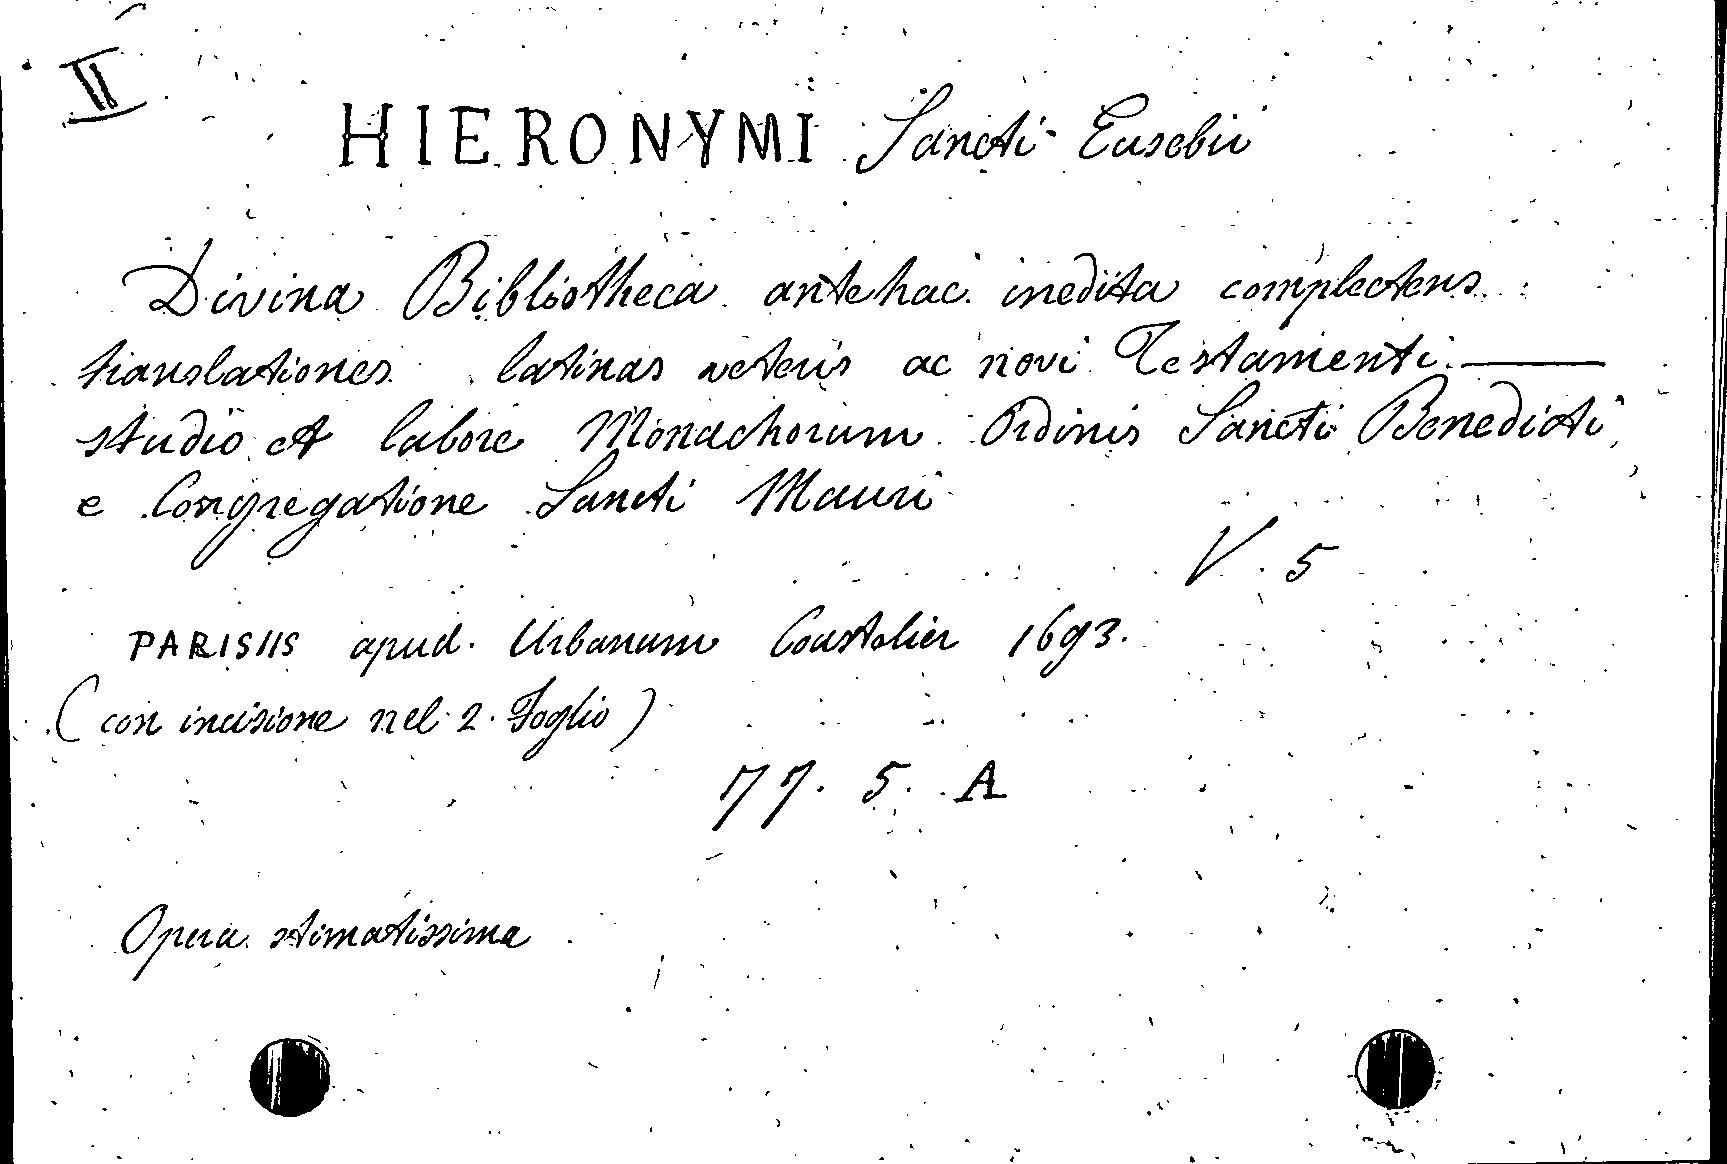 II
HIERONYMI Sancti Eusebii
Divina Bibliotheca antehac inedita complectens
translationes latinas veteris ac novi Testamenti ——
studio et labore Monachorum Ordinis Sancti Benedicti
e Congregatione Sancti Mauri
V. 5
PARISIIS apud. Urbanum Coustelier 1693.
(con incisione nel 2. Foglio)
77. 5. A
Opera stimatissima